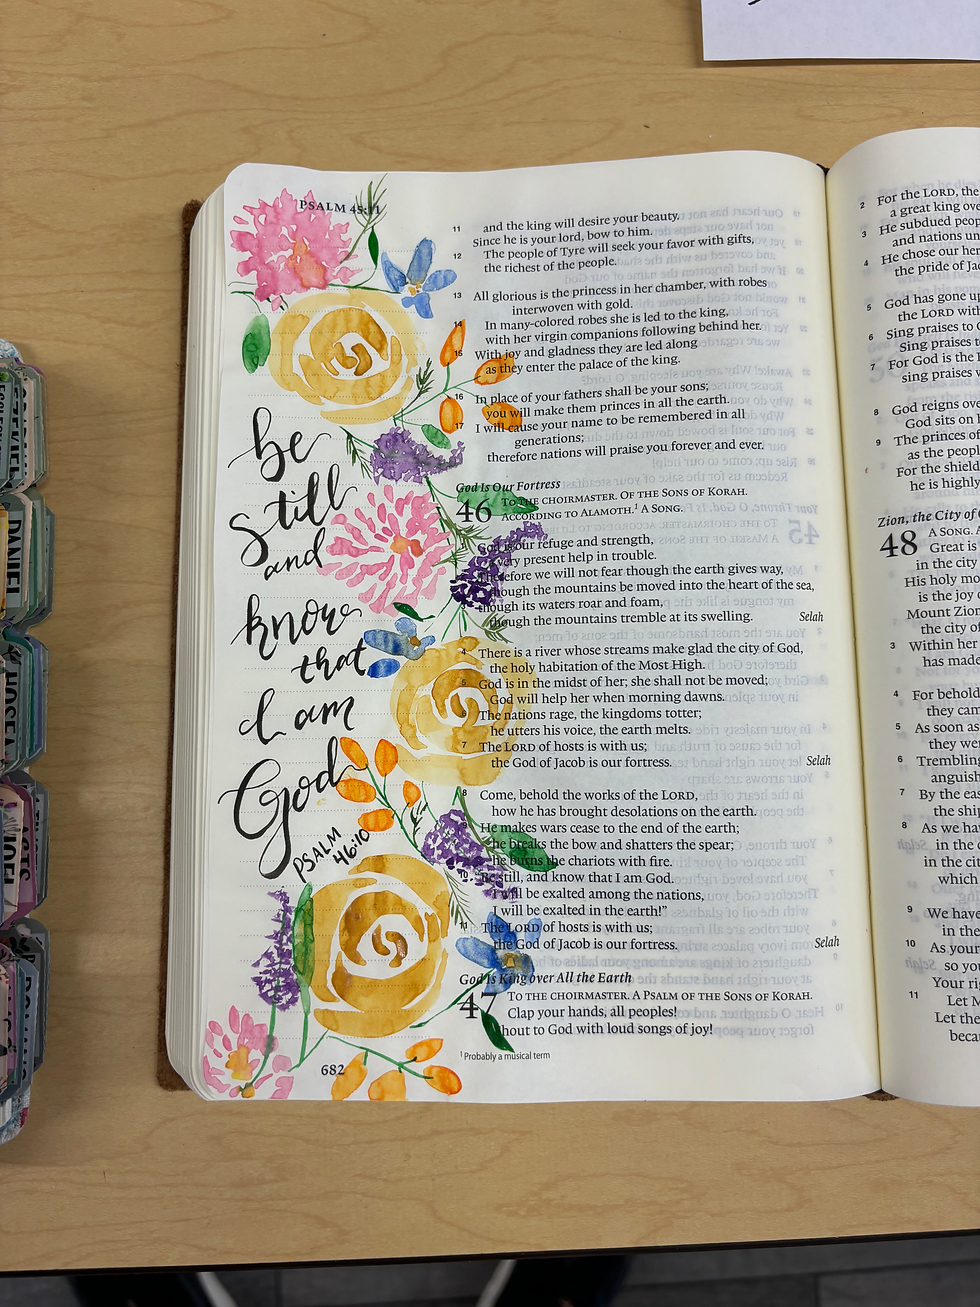 PSALM 45:11
be
still
and
know
that
I am
God
PSALM
46:10
682
11 and the king will desire your beauty.
Since he is your lord, bow to him.
12 The people of Tyre will seek your favor with gifts,
the richest of the people.
13 All glorious is the princess in her chamber, with robes
interwoven with gold.
14 In many-colored robes she is led to the king,
with her virgin companions following behind her.
15 With joy and gladness they are led along
as they enter the palace of the king.
16 In place of your fathers shall be your sons;
you will make them princes in all the earth.
17 I will cause your name to be remembered in all
generations;
therefore nations will praise you forever and ever.
God Is Our Fortress
46 TO THE CHOIRMASTER. OF THE SONS OF KORAH.
ACCORDING TO ALAMOTH.¹ A SONG.
God is our refuge and strength,
very present help in trouble.
Therefore we will not fear though the earth gives way,
though the mountains be moved into the heart of the sea,
though its waters roar and foam,
though the mountains tremble at its swelling. Selah
4 There is a river whose streams make glad the city of God,
the holy habitation of the Most High.
5 God is in the midst of her; she shall not be moved;
God will help her when morning dawns.
The nations rage, the kingdoms totter;
he utters his voice, the earth melts.
7 The LORD of hosts is with us;
the God of Jacob is our fortress. Selah
8 Come, behold the works of the LORD,
how he has brought desolations on the earth.
He makes wars cease to the end of the earth;
he breaks the bow and shatters the spear;
he burns the chariots with fire.
10 "Be still, and know that I am God.
I will be exalted among the nations,
I will be exalted in the earth!"
11 The LORD of hosts is with us;
the God of Jacob is our fortress. Selah
God Is King over All the Earth
47 TO THE CHOIRMASTER. A PSALM OF THE SONS OF KORAH.
Clap your hands, all peoples!
Shout to God with loud songs of joy!
¹ Probably a musical term
2 For the LORD, the
a great king ove
3 He subdued peop
and nations un
4 He chose our her
the pride of Jac
5 God has gone up
the LORD with
6 Sing praises to
Sing praises to
7 For God is the
sing praises w
8 God reigns ove
God sits on
9 The princes of
as the peopl
For the shield
he is highly
Zion, the City of
48 A SONG. A
Great is
in the city
His holy mo
is the joy
Mount Zion
the city of
3 Within her
has made
4 For behold
they cam
5 As soon as
they wer
6 Trembling
anguish
7 By the eas
the ship
8 As we ha
in the
in the cit
which
9 We have
in the
10 As your
so yo
Your rig
11 Let M
Let the
beca
EZEKIEL
DANIEL
HOSEA